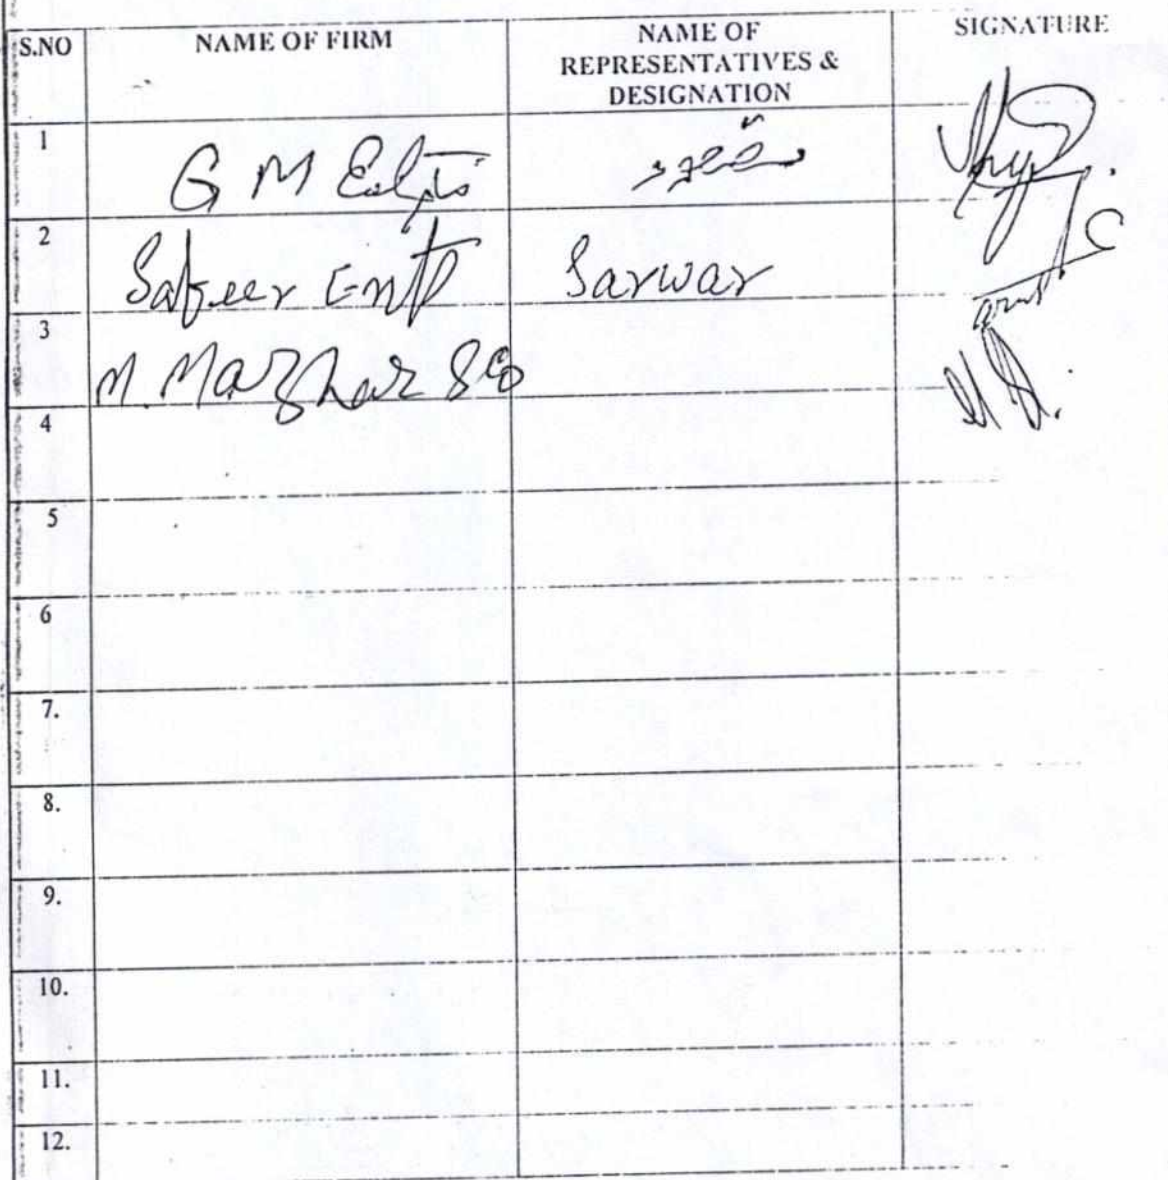 S.NO NAME OF FIRM NAME OF REPRESENTATIVES & DESIGNATION SIGNATURE
1 G M
2 Safeer Entp Sarwar
3 M. Mazhar & Co
4
5
6
7.
8.
9.
10.
11.
12.